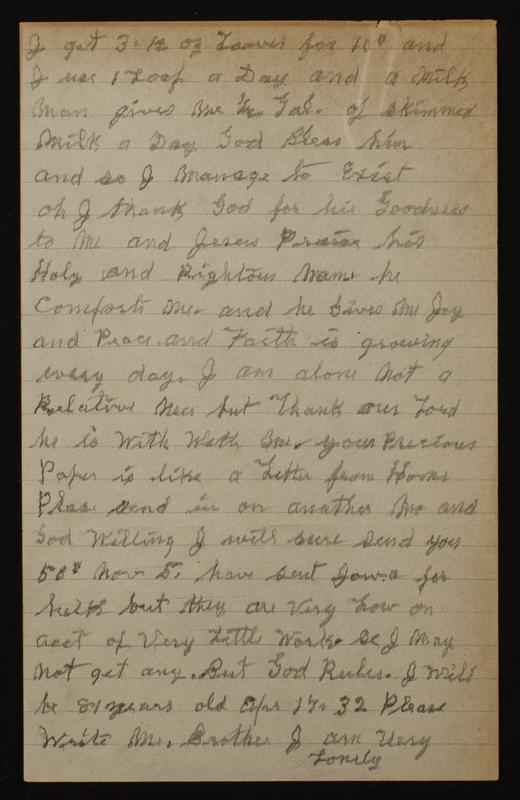 I get 3. 12 oz Loaves for 10¢ and
I use 1 Loaf a Day and a Milk
Man gives Me Gal. of skimmed
Milk a Day God Bless him
and so I Manage to Exist
oh I thank God for his Goodness
to Me and Jesus Praise his
Holy and Rightous Name he
Comforts Me. and he Gives Me Joy
and Peace and Faith is growing
every day. I am alone Not a
Relative Near but Thank our Lord
he is With With Me. your Precious
Paper is like a Letter from Home
Please send in on another Mo and
God Willing I will sure Send you
50¢ Nov 5. have sent Iowa for
help but they are Very Low on
acct of Very Little Work. So I May
Not get any. But God Rules. I Will
be 81 years old Apr 17. 32 Please
Write Me. Brother I am Very
Lonely